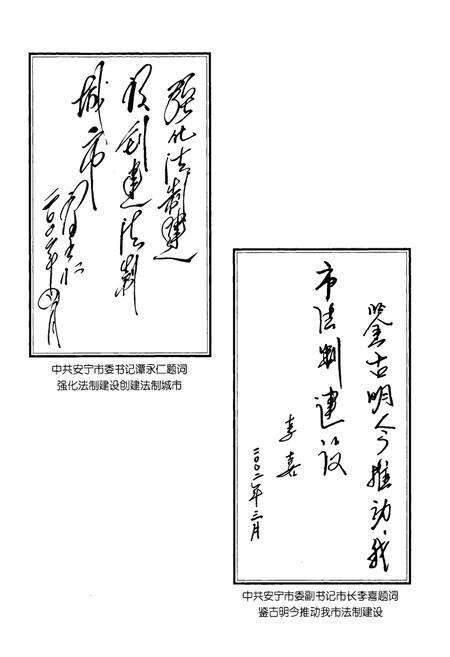 强化法制建
设创建法制
城市
谭永仁
二〇〇二年四月
中共安宁市委书记谭永仁题词
强化法制建设创建法制城市
鉴古明今推动我
市法制建设
李喜
二〇〇二年三月
中共安宁市委副书记市长李喜题词
鉴古明今推动我市法制建设